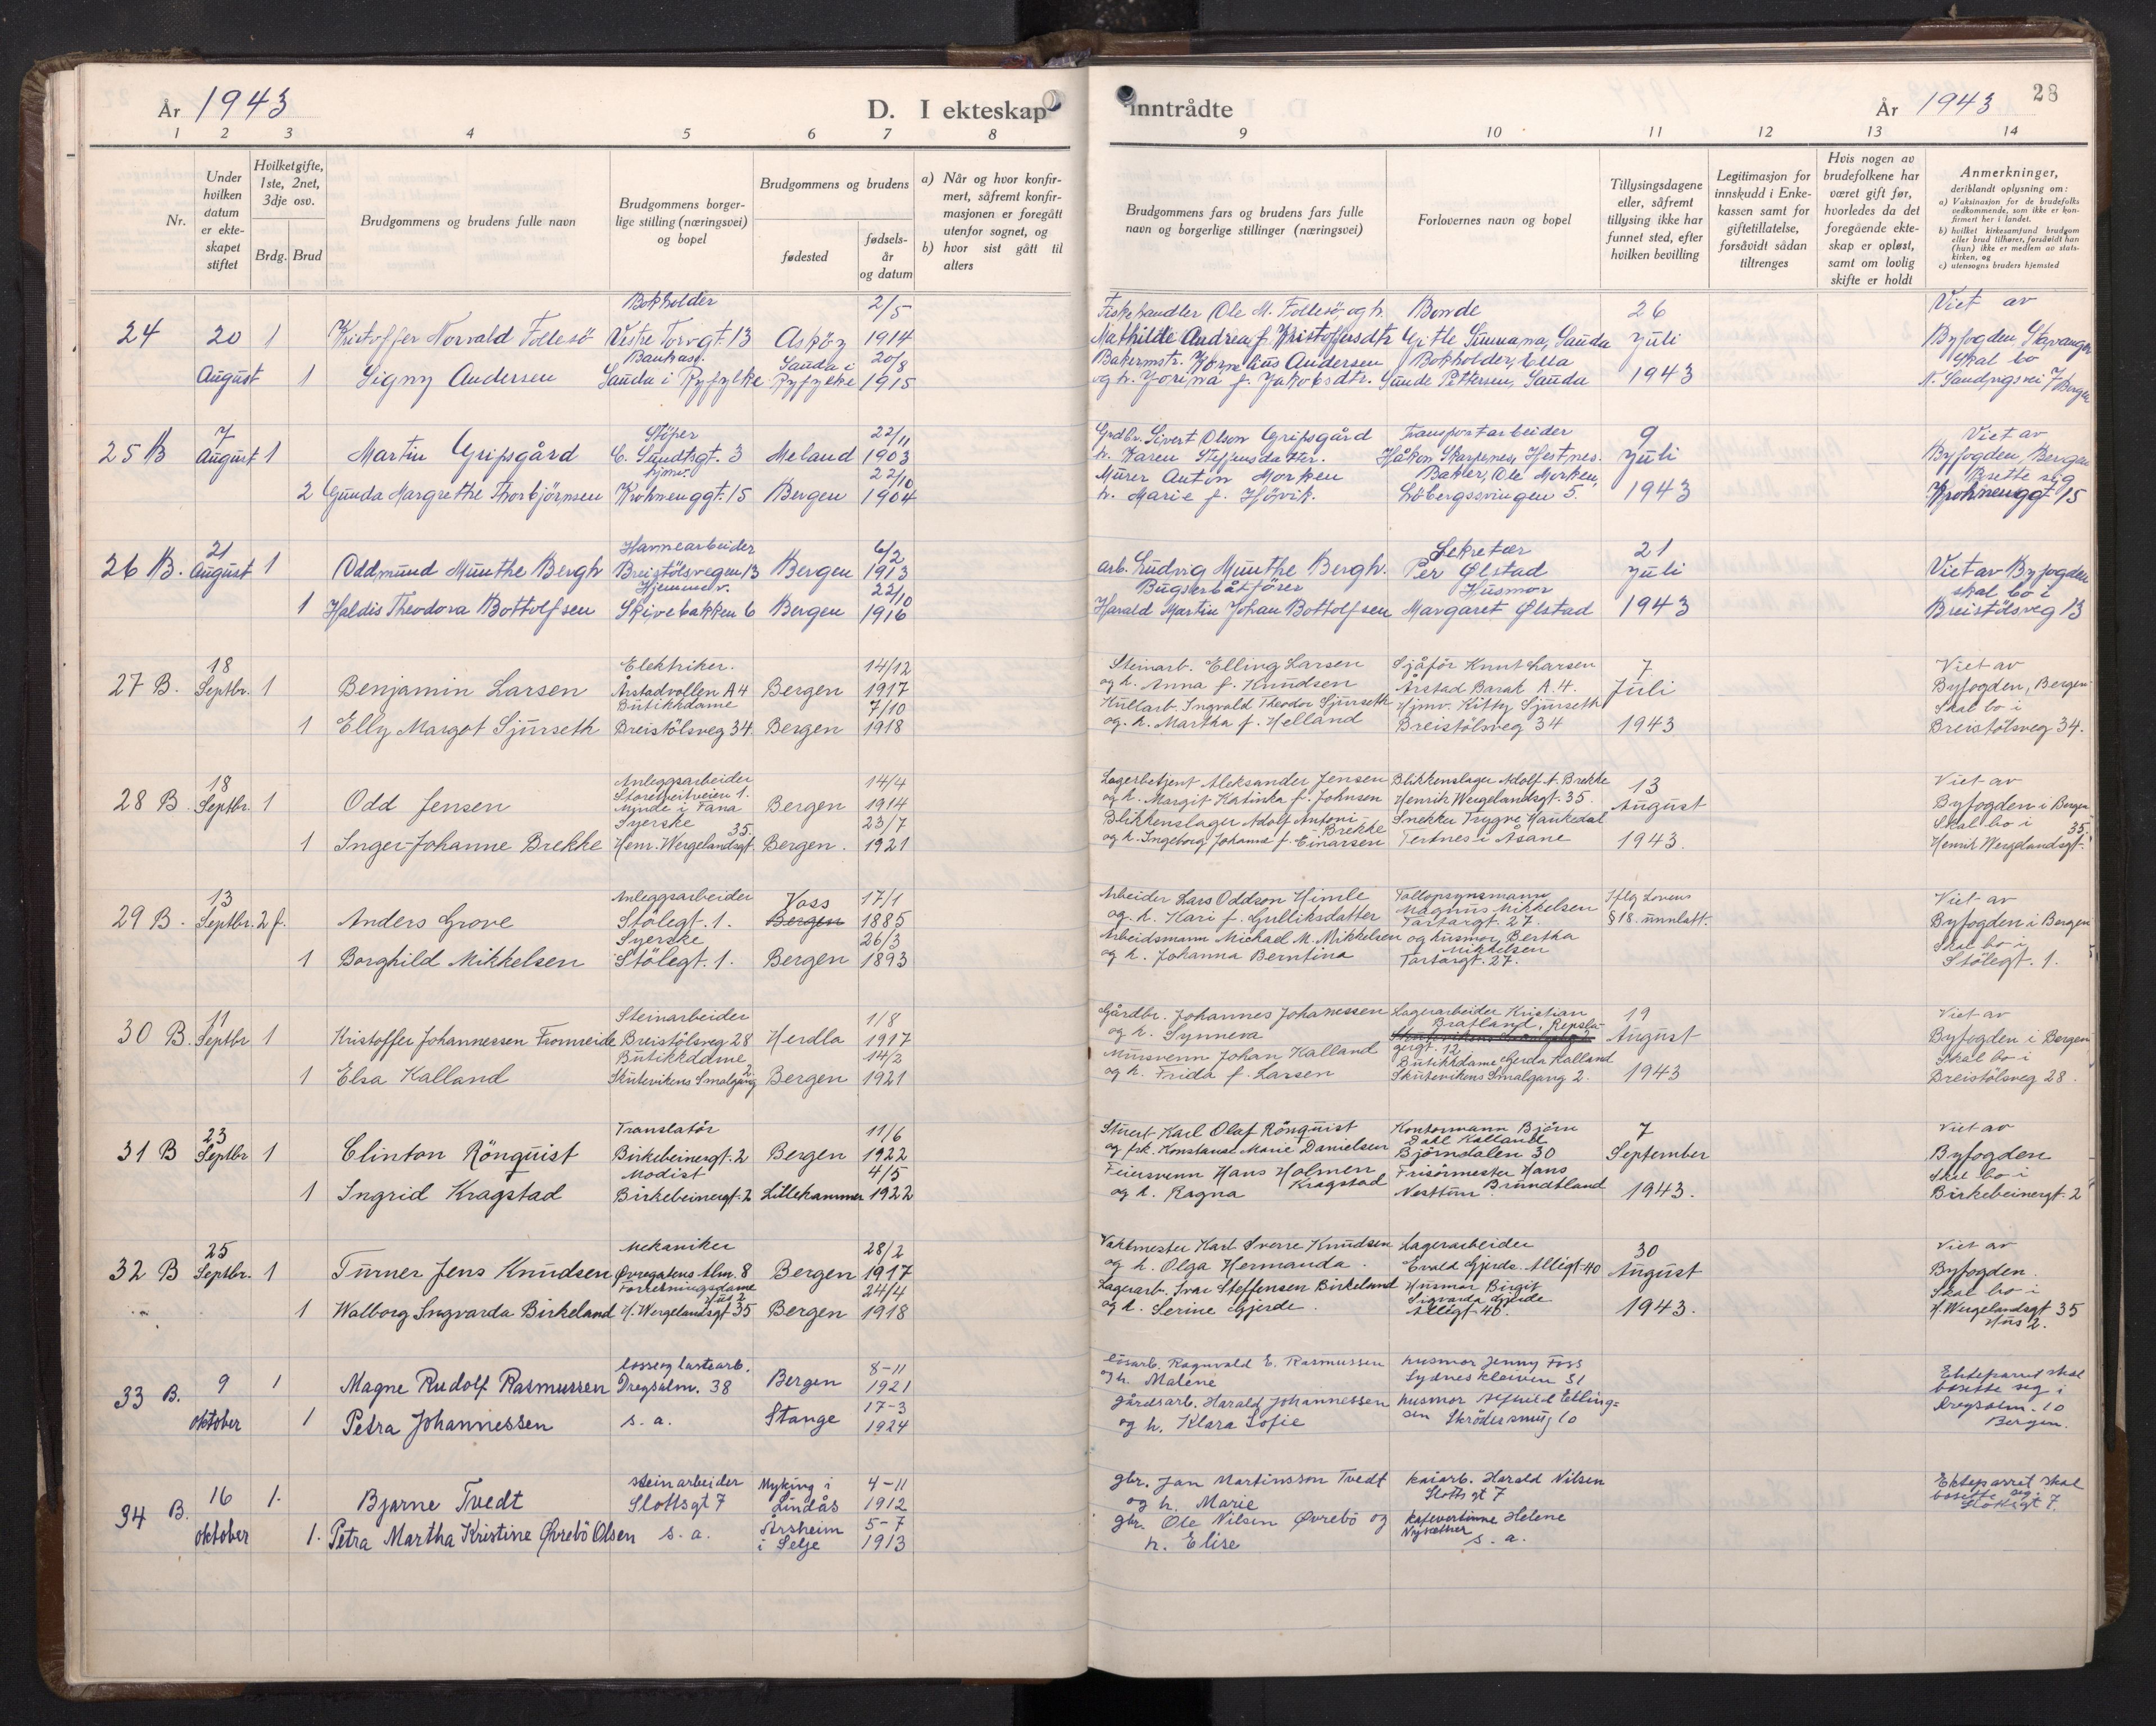 År 1943 D. I ekteskap inntrådte År 1943 28
1 2 3 4 5 6 7 8 9 10 11 12 13 14
Nr.
Under hvilken datum er ekteskapet stiftet
Hvilketgifte, 1ste, 2net, 3dje osv.
Brdg. Brud
Brudgommens og brudens fulle navn
Brudgommens borgerlige stilling (næringsvei) og bopel
Brudgommens og brudens
fødested
fødselsår og datum
a) Når og hvor konfirmert, såfremt konfirmasjonen er foregått utenfor sognet, og
b) hvor sist gått til alters
Brudgommens fars og brudens fars fulle navn og borgerlige stillinger (næringsvei)
Forlovernes navn og bopel
Tillysingsdagene eller, såfremt tillysing ikke har funnet sted, efter hvilken bevilling
Legitimasjon for innskudd i Enkekassen samt for giftetillatelse, forsåvidt sådan tiltrenges
Hvis nogen av brudefolkene har været gift før, hvorledes da det foregående ekteskap er opløst, samt om lovlig skifte er holdt
Anmerkninger,
deriblandt oplysning om:
a) Vaksinasjon for de brudefolks vedkommende, som ikke er konfirmert her i landet.
b) hvilket kirkesamfund brudgom eller brud tilhører, forsåvidt han (hun) ikke er medlem av statskirken, og
c) utensogns bruders hjemsted
Bokholder 2/5 Fiskehandler Ole M. Follesö, og h. Bonde 26 Viet av
24 20 1 Kristoffer Norvald Follesö Vestre Torvgt 13 Asköy 1914 Mathilde Andrea f. Kristoffersdtr Gitle Sunnanå, Sauda Juli Byfogden, Stavanger
Sauda i 20/8 Bakermstr. Kornelius Andersen Bokholder, Ella Skal bo
August 1 Signy Andersen Sauda i Ryfylke Ryfylke 1915 og h. Jorina f. Jakobsdtr. Sunde Pettersen, Sauda 1943 7 Bergen
7 Stöper 22/11 Grdbr. Sivert Olson Gripsgård Transportarbeider 9 Viet av
25 B August 1 Martin Gripsgård C. Sundtsgt. 3 Meland 1903 h. Karen Steffensdatter. Håkon Skarpenes, Hestnes. Juli Byfogden, Bergen
hjmv. 22/10 Murer Anton Morken Baker, Ole Morken, Bosette sig
2 Gunda Margrethe Thorbjörnsen Krohnenggt. 15 Bergen 1904 h. Marie f. Hövik. Löbergssvingen 5. 1943 Krohnenggt 15
21 Havnearbeider 6/2 Sekretær 21
26 B. August 1 Oddmund Munthe Bergh Breistölsvegen 13 Bergen 1913 arb. Ludvig Munthe Bergh. Per Ølstad Juli Viet av Byfogden
Hjemmev. 22/10 Bugserbåtförer Husmor skal bo i
1 Haldis Theodora Bottolfsen Skivebakken 6 Bergen 1916 Harald Martin Johan Bottolfsen Margaret Ølstad 1943 Breistölsveg 13
18 Elektriker. 14/12 Steinarb. Elling Larsen Sjåför Knut Larsen 7 Viet av
27 B. Septbr. 1 Benjamin Larsen Årstadvollen A 4 Bergen 1917 og h. Anna f. Knudsen Årstad Barak A. 4. Juli Byfogden, Bergen.
Butikkdame 7/10 Kullarb. Ingvald Theodor Sjurseth Hjmv. Kitty Sjurseth Skal bo i
1 Elly Margot Sjurseth Breistölsveg 34. Bergen 1918 og h. Martha f. Helland Breistölsveg 34 1943 Breistölsveg 34.
18 Anleggsarbeider 14/4 Lagerbetjent Aleksander Jensen Blikkenslager Adolf A. Brekke 13 Viet av
28 B Septbr. 1 Odd Jensen Storetveitveien 1. i Fana Bergen 1914 og h. Margit Katinka f. Johnsen Henrik Wergelandsgt. 35. August Byfogden i Bergen
Syerske 23/7 Blikkenslager Adolf Antoni Brekke Snekker Trygve Haukedal Skal bo i
1 Inger-Johanne Brekke Henr. Wergelandsgt. 35. Bergen. 1921 og h. Ingeborg Johanne f. Einarsen Tertnes i Åsane 1943. Henrik Wergelandsgt. 35.
13 Anleggsarbeider Voss 17/1 Arbeider Lars Oddson Himle Tollopsynsmann Iflg Lovens Viet av
29 B. Septbr. 2 f. Anders Grove Stölegt. 1. Bergen 1885 og h. Kari f. Gulliksdatter Magnus Mikkelsen Tartargt. 27. § 18. unnlatt. Byfogden i Bergen
Syerske 26/3 Arbeidsmann Michael M. Mikkelsen og husmor Bertha Mikkelsen Skal bo i
1 Borghild Mikkelsen Stölegt. 1. Bergen 1893 og h. Johanna Berntina Tartargt. 27. Stölegt. 1.
11 Steinarbeider 1/8 Gårdbr. Johannes Johannessen Lagerarbeider Kristian 19 Viet av
30 B. Septbr 1 Kristoffer Johannessen Fromreide Breistölsveg 28 Herdla 1917 og h. Synneva Bratland, Repslagergt. 12 August Byfogden i Bergen
Butikkdame 14/3 Mursvenn Johan Kalland Butikkdame Gerda Kalland Skal bo i
1 Elsa Kalland Skutevikens Smalgang 2 Bergen 1921 og h. Frida f. Larsen Skutevikens Smalgang 2. 1943 Breistölsveg 28.
23 Translatör 11/6 Stuert Karl Olaf Rönquist Kontormann Björn 7 Viet av
31 B Septbr 1 Clinton Rönquist Birkebeinergt. 2 Bergen 1922 og frk. Konstanse Marie Danielsen Dahl Kalland Björndalen 30 September Byfogden
Modist 4/5 Feiersvenn Hans Holmen Kragstad Frisörmester Hans Skal bo i
1 Ingrid Kragstad Birkebeinergt. 2 Lillehammer 1922 og h. Ragna Nesttun Brundtland 1943. Birkebeinergt. 2
25 Mekaniker 28/2 Vaktmester Karl Sverre Knudsen Lagerarbeider 30 Viet av
32 B Septbr. 1 Turner Jens Knudsen Øvregatens Alm. 8 Bergen 1917 og h. Olga Hermanda. Evald Gjerde. Alligt. 40 August Byfogden.
24/4 Lagerarb. Ivar Steffensen Birkeland Husmor Birgit Skal bo i
1 Walborg Ingvarda Birkeland H. Wergelandsgt 35 Hus 2 Bergen 1918 og h. Serine Gjerde. Sigvarda Gjerde Alligt. 40. 1943. H. Wergelandsgt 35 Hus 2.
losse og lastearb. 8-11 lösarb. Ragnvald E. Rasmussen husmor Jenny Foss Ekteparet skal
33 B. 9 1 Magne Rudolf Rasmussen Dregsalm. 38 Bergen 1921 og h. Malene Sydneskleiven 31 bosette seg i
17-3 gårdsarb. Harald Johannessen husmor Elling- Dregsalm. 10
oktober 1 Petra Johannessen s. a. Stange 1924 og h. Klara Sofie sen Skrödersmug 10 Bergen.
steinarbeider Myking i 4-11 gbr. Jan Martinsson Tvedt kaiarb. Harald Nilsen Ekteparret skal
34 B. 16 1. Bjarne Tvedt Slottsgt 7 Lindås 1912 og h. Marie Slottsgt 7 bosette seg Slottsgt 7.
Årsheim 5-7 gbr. Ole Nilsen Øvrebö og kafevertinne Helene
oktober 1. Petra Martha Kristine Øvrebö Olsen s. a. i Selje 1913 h. Elise Nysæther s. a.